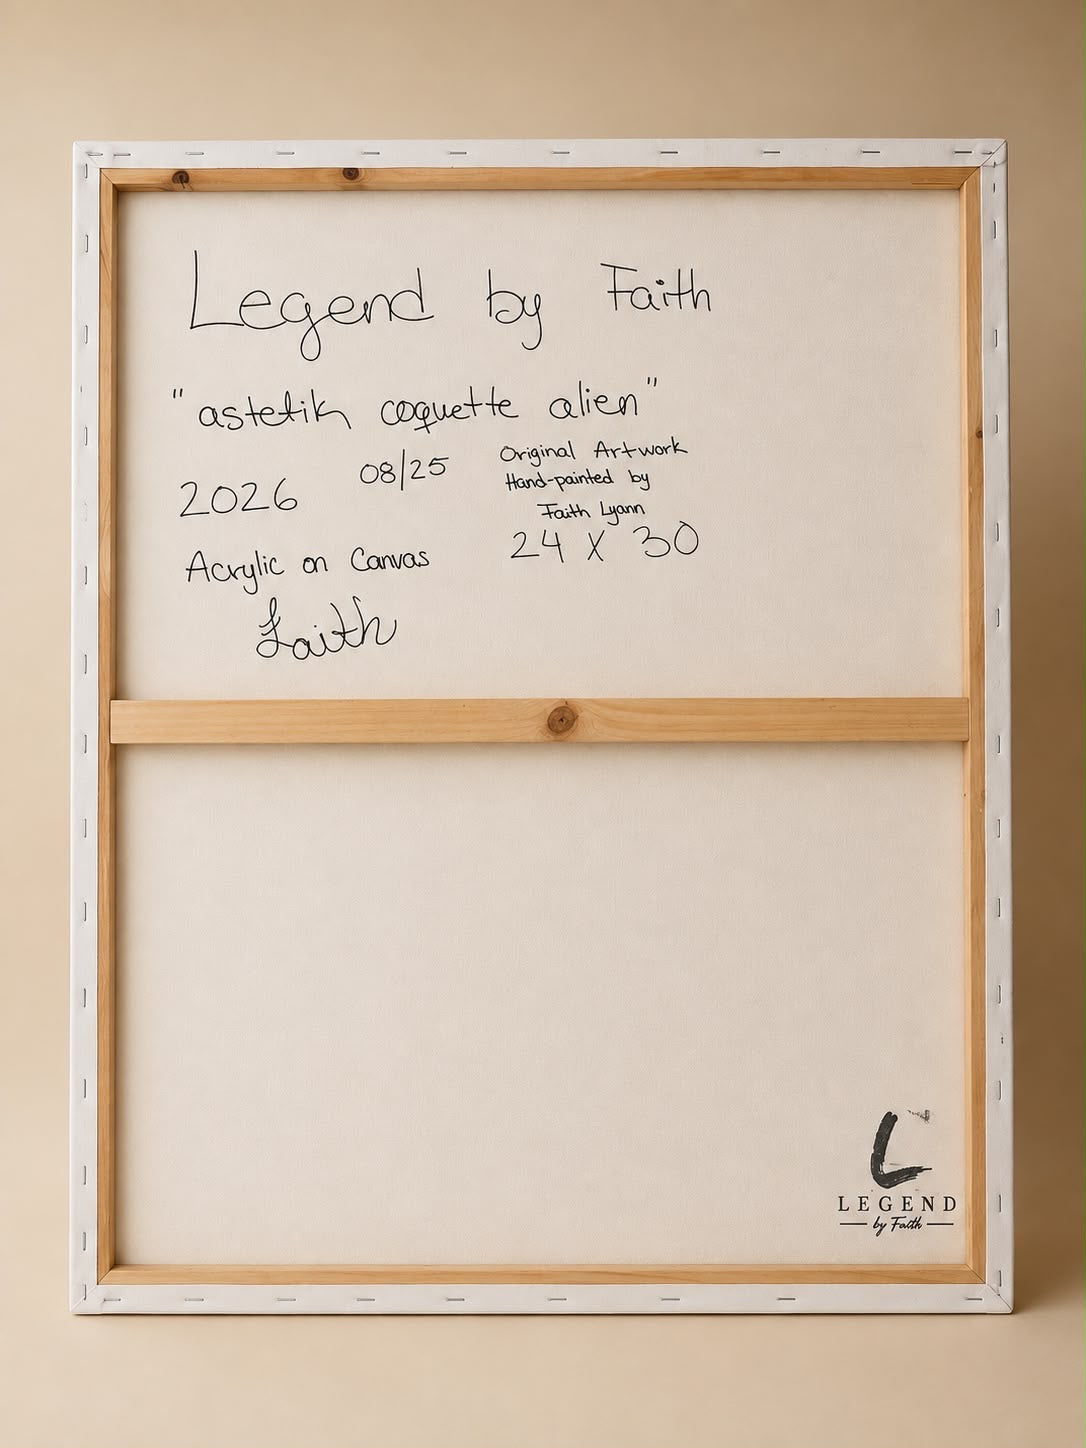 Legend by Faith
"astetik coquette alien"
2026 08/25
Original Artwork
Hand-painted by
Faith Lyann
24 X 30
Acrylic on Canvas
Faith
L
LEGEND
by Faith